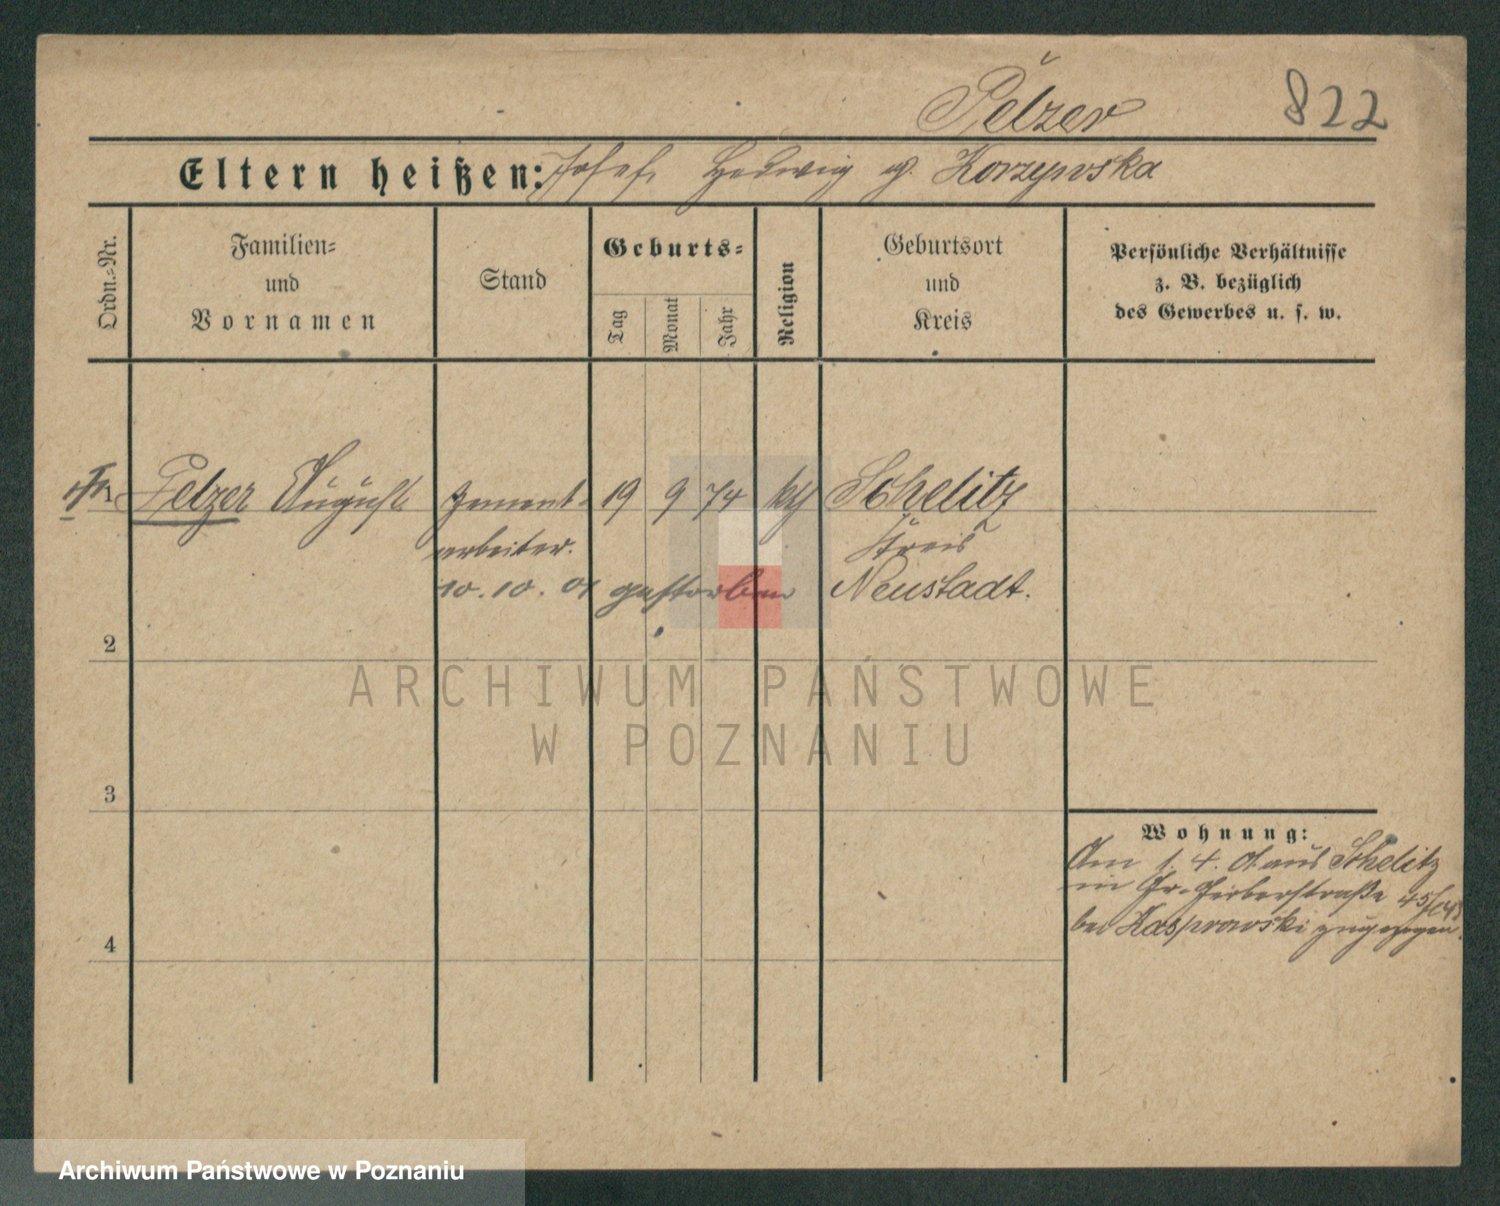 Pelzer 822
Eltern heißen: Josef. Hedwig g. Korzewska
Ordn.-Nr.
Familien-
und
Vornamen
Stand
Geburts-
Tag
Monat
Jahr
Religion
Geburtsort
und
Kreis
Persönliche Verhältnisse
z. B. bezüglich
des Gewerbes u. s. w.
1 Pelzer August Zement- 19 9 74 kth Schelitz
arbeiter. Kreis
10.10.01 gestorben Neustadt.
2
ARCHIWUM PAŃSTWOWE
W POZNANIU
3
Wohnung:
Am 1. 4. 01 aus Schelitz
in Gr. Gerberstraße 45/
bei Kasprowski zugezogen.
4
Archiwum Państwowe w Poznaniu